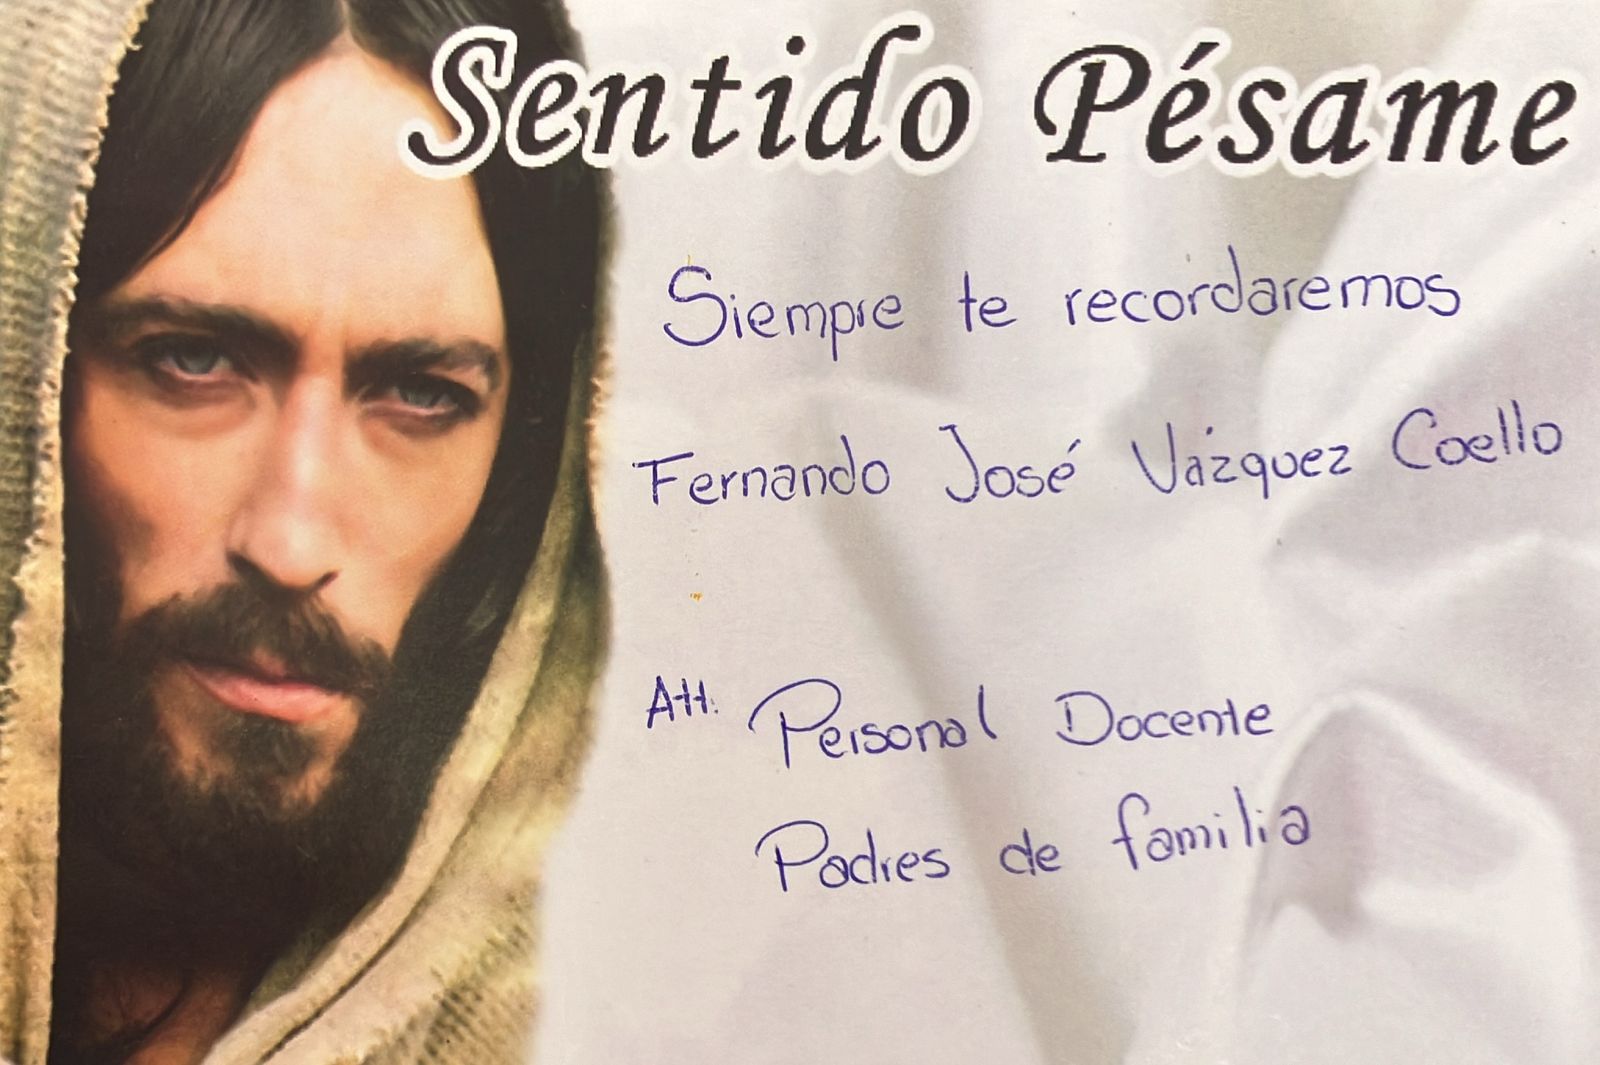 Sentido Pésame
Siempre te recordaremos
Fernando José Vázquez Coello
Att. Personal Docente
Padres de familia